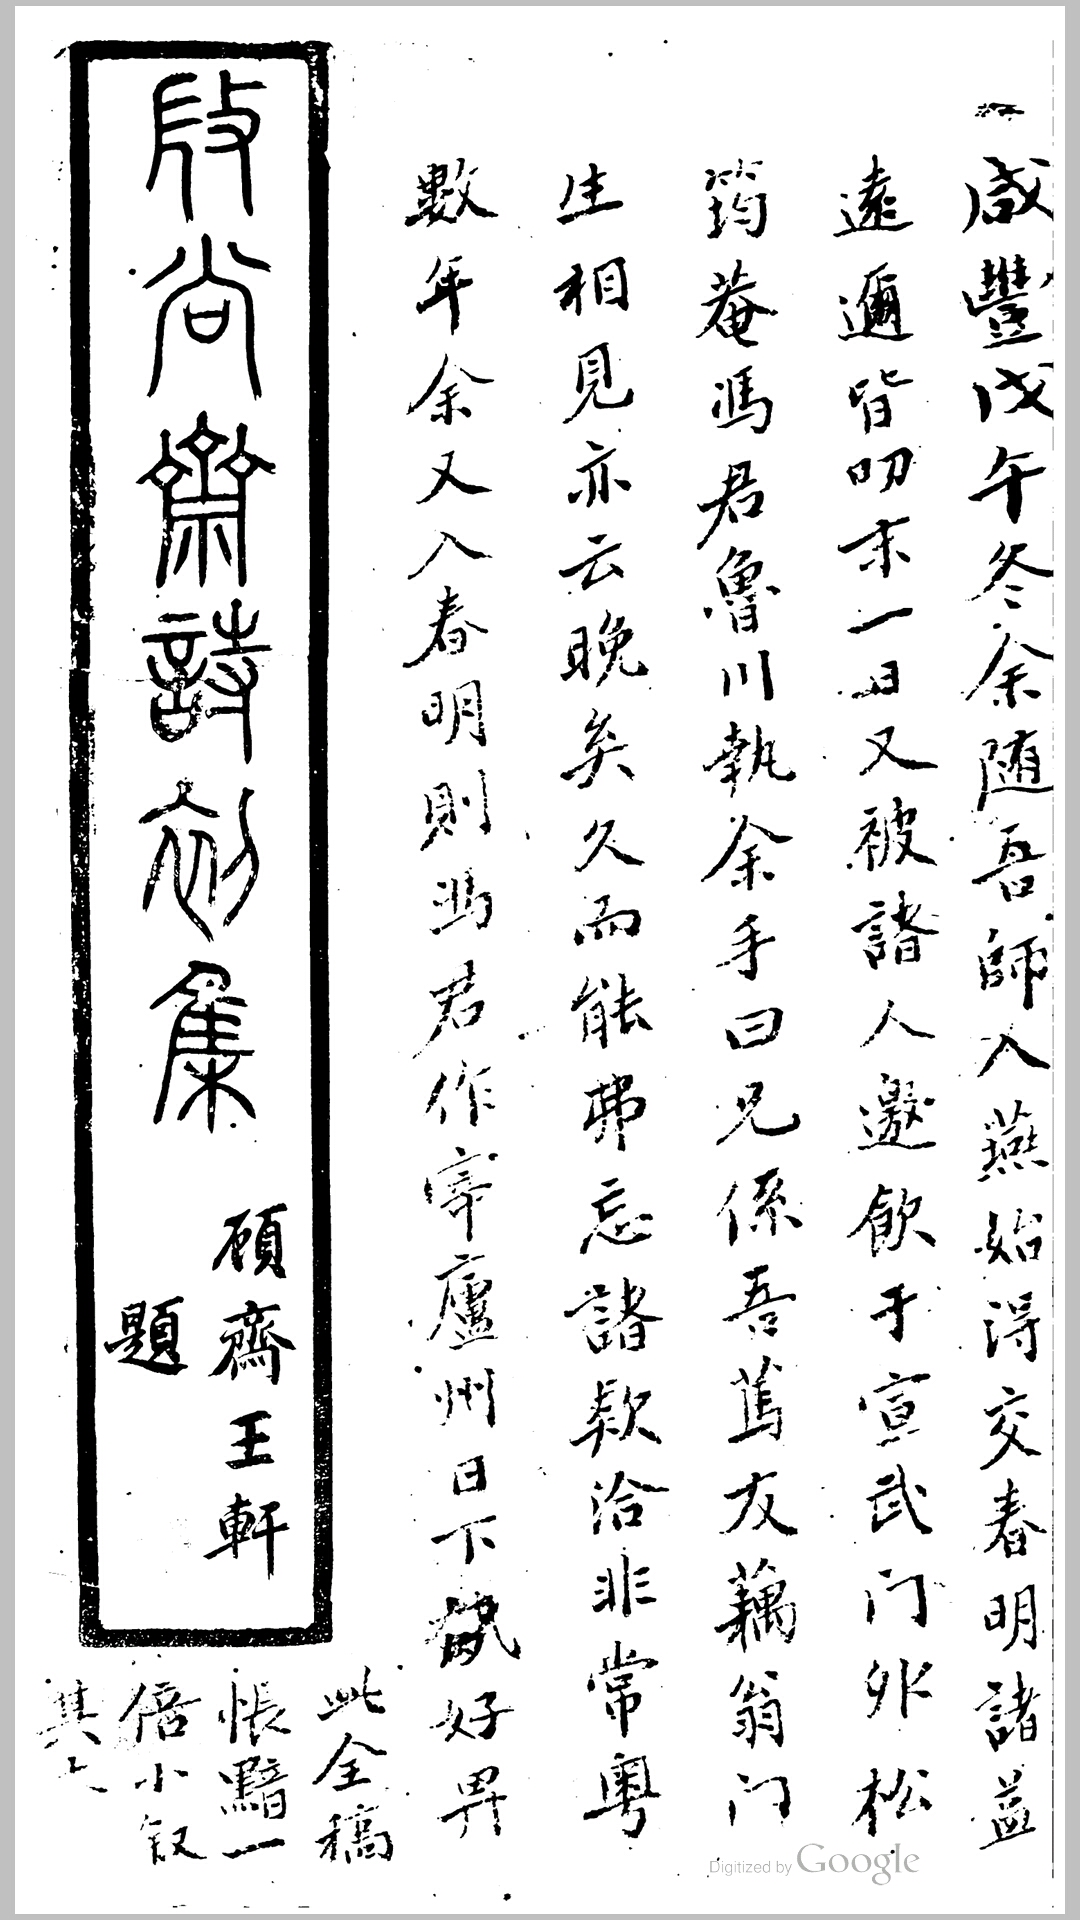 咸豐戊午冬余随吾師入燕始得交春明諸益
遠邇皆叨末一日又被諸人邀飲于宣武门外松
筠菴馮君魯川執余手曰兄係吾萬友藕翁门
生相見亦云晚矣久而能弗忘諸欵洽非常粤
數年余又入春明則馮君作宰廬州日下好畀
此全稿
悵黯一
倍小叙
其
尚齋詩初集
顧齋王軒
題
Digitized by Google